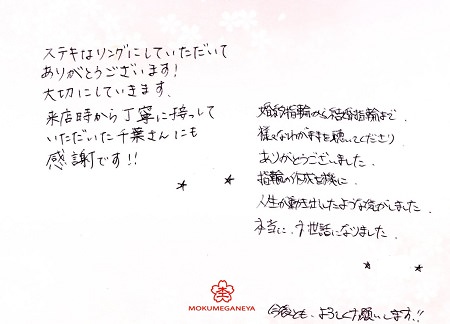 ステキなリングにしていただいて
ありがとうございます!
大切にしていきます。
来店時から丁寧に接して
いただいた千葉さんにも
感謝です!!
婚約指輪から結婚指輪まで、
様々なわがままを聴いてくださり
ありがとうございました。
指輪の作成を機に、
人生が動き出したような気がしました。
本当に、お世話になりました。
MOKUMEGANEYA
今後とも、よろしくお願いします!!